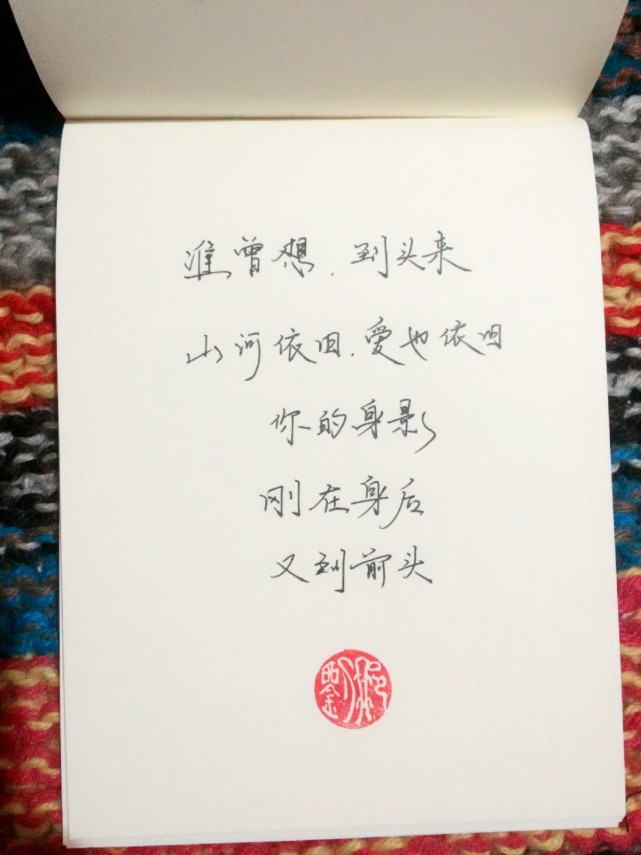 谁曾想，到头来
山河依旧，爱也依旧
你的身影
刚在身后
又到前头